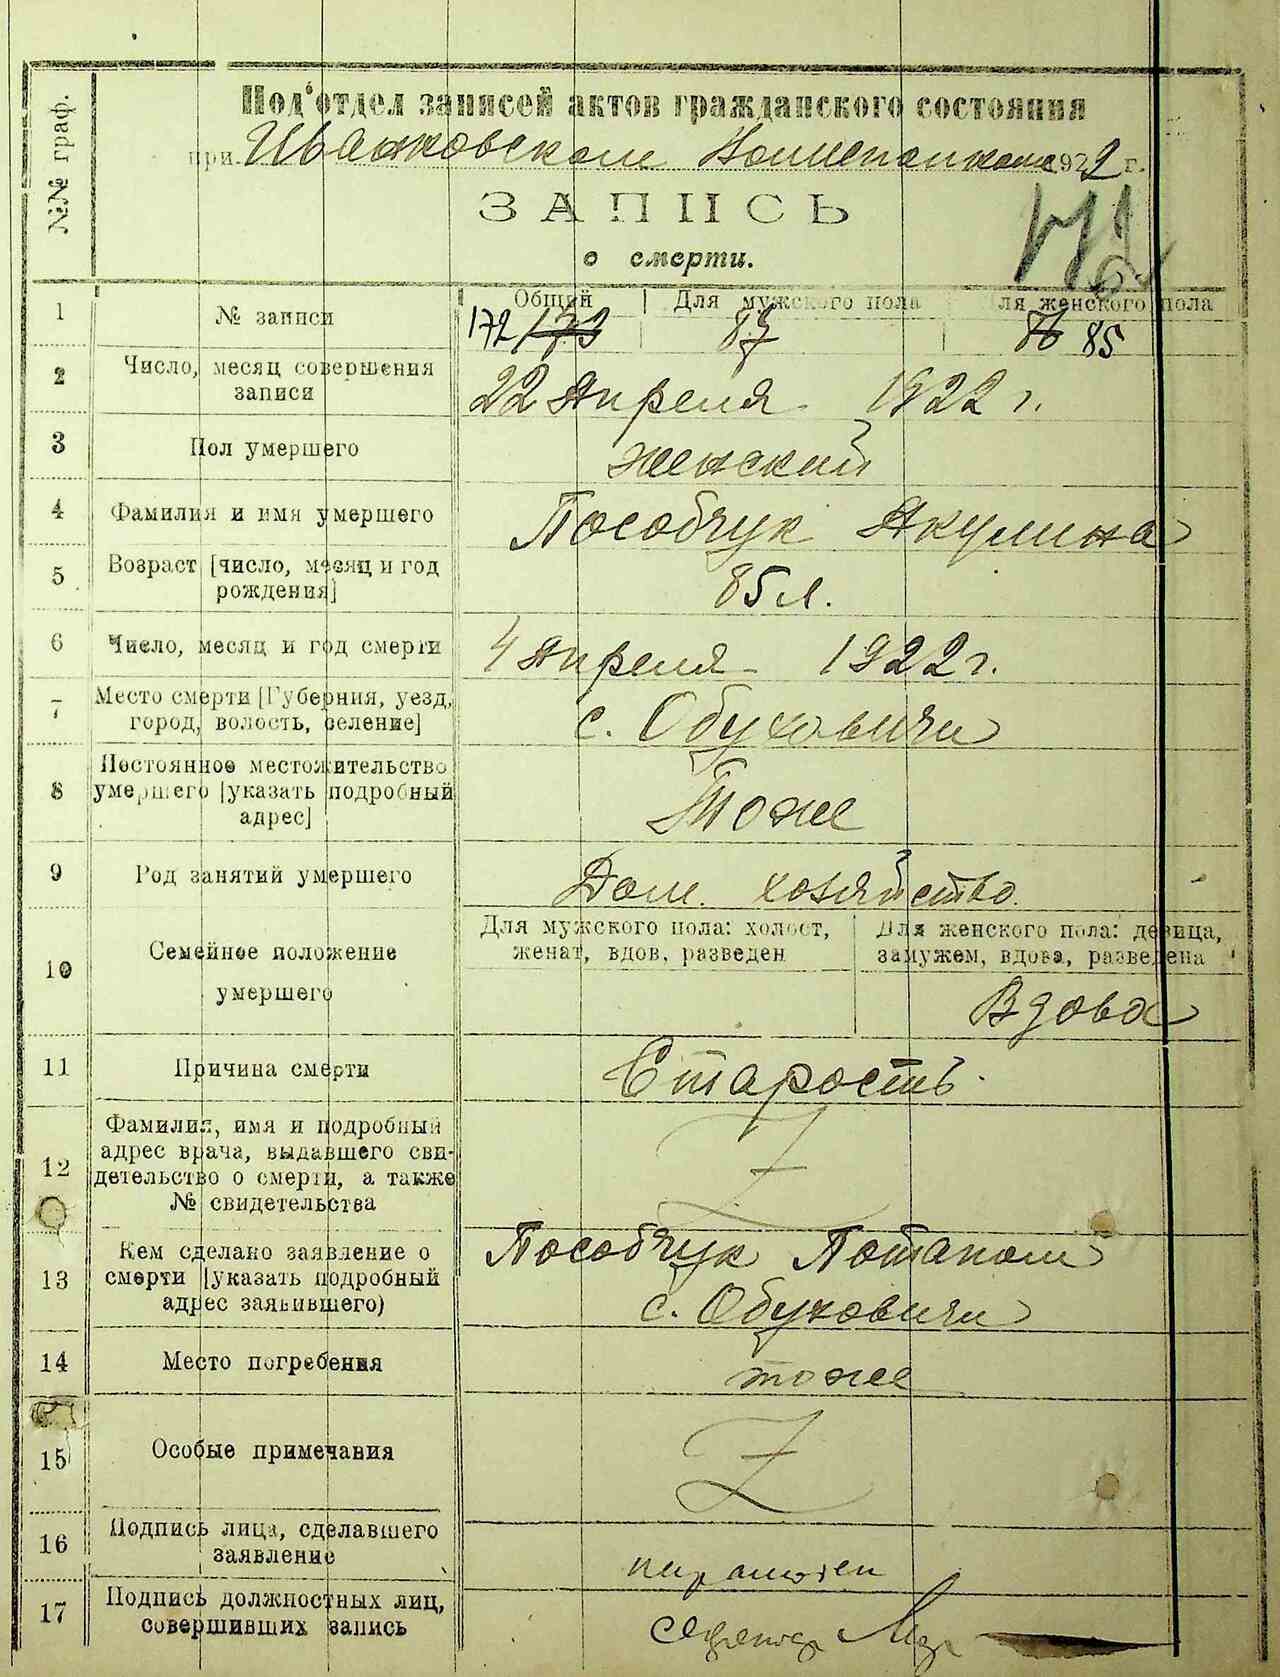 №№ граф.
Под'отдел записей актов гражданского состояния
при Иванковском 1922 г.
ЗАПИСЬ
о смерти.
1 № записи Общий Для мужского пола Для женского пола
172/173 87 86 85
2 Число, месяц совершения
записи 22 Апреля 1922 г.
3 Пол умершего женский
4 Фамилия и имя умершего Пособчук Якулина
5 Возраст [число, месяц и год
рождения] 85 л.
6 Число, месяц и год смерти 4 Апреля 1922 г.
7 Место смерти [Губерния, уезд,
город, волость, селение] с. Обуховичи
8 Постоянное местожительство
умершего [указать подробный
адрес] Тоже
9 Род занятий умершего Дом. хозяйство.
10 Семейное положение
умершего
Для мужского пола: холост,
женат, вдов, разведен
Для женского пола: девица,
замужем, вдова, разведена
Вдова
11 Причина смерти Старость.
12 Фамилия, имя и подробный
адрес врача, выдавшего сви-
детельство о смерти, а также
№ свидетельства
13 Кем сделано заявление о
смерти [указать подробный
адрес заявившего)
Пособчук Потапом
с. Обуховичи
14 Место погребения тоже
15 Особые примечания
16 Подпись лица, сделавшего
заявление
17 Подпись должностных лиц,
совершивших запись